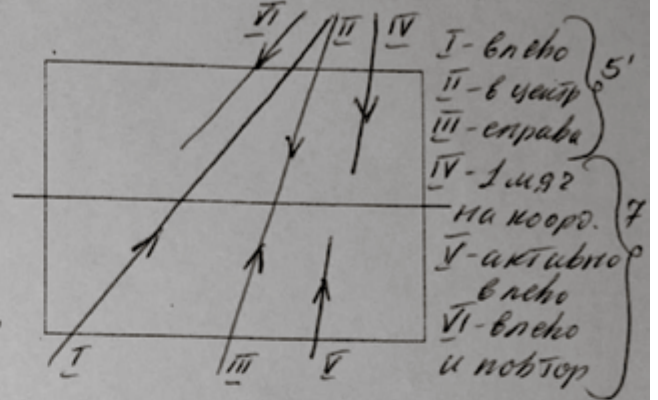 VI
II
IV
I - влево
II - в центр
III - справа
5'
IV - 1 мяч
на коорд.
7
V - активно
влево
VI - влево
и повтор
I
III
V